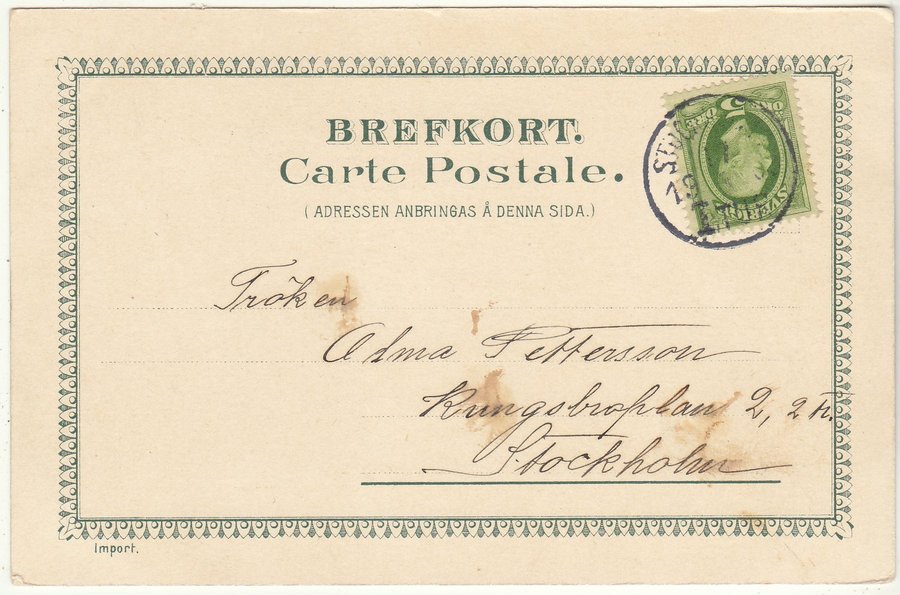 BREFKORT.
Carte Postale.
(ADRESSEN ANBRINGAS Å DENNA SIDA.)
SVERIGE
5
ÖRE
Fröken
Alma Pettersson
Kungsbroplan 2, 2 tr.
Stockholm
Import.